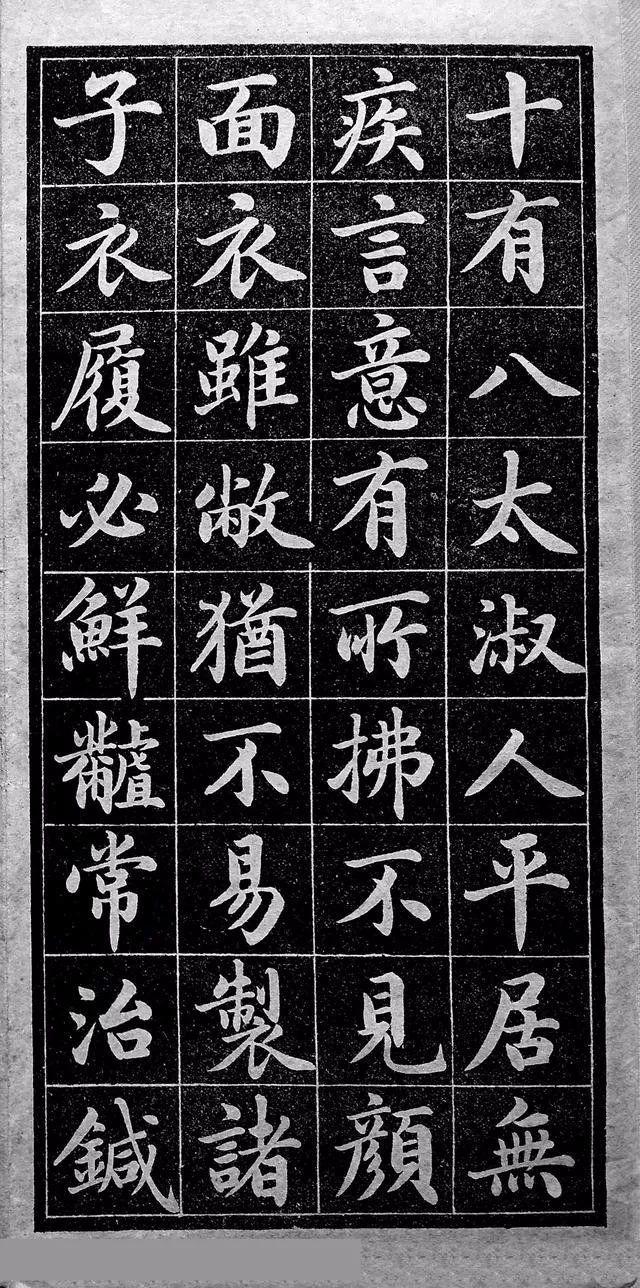 十有八太淑人平居無
疾言意有所拂不見顔
面衣雖敝猶不易製諸
子衣履必鮮齇常治鍼